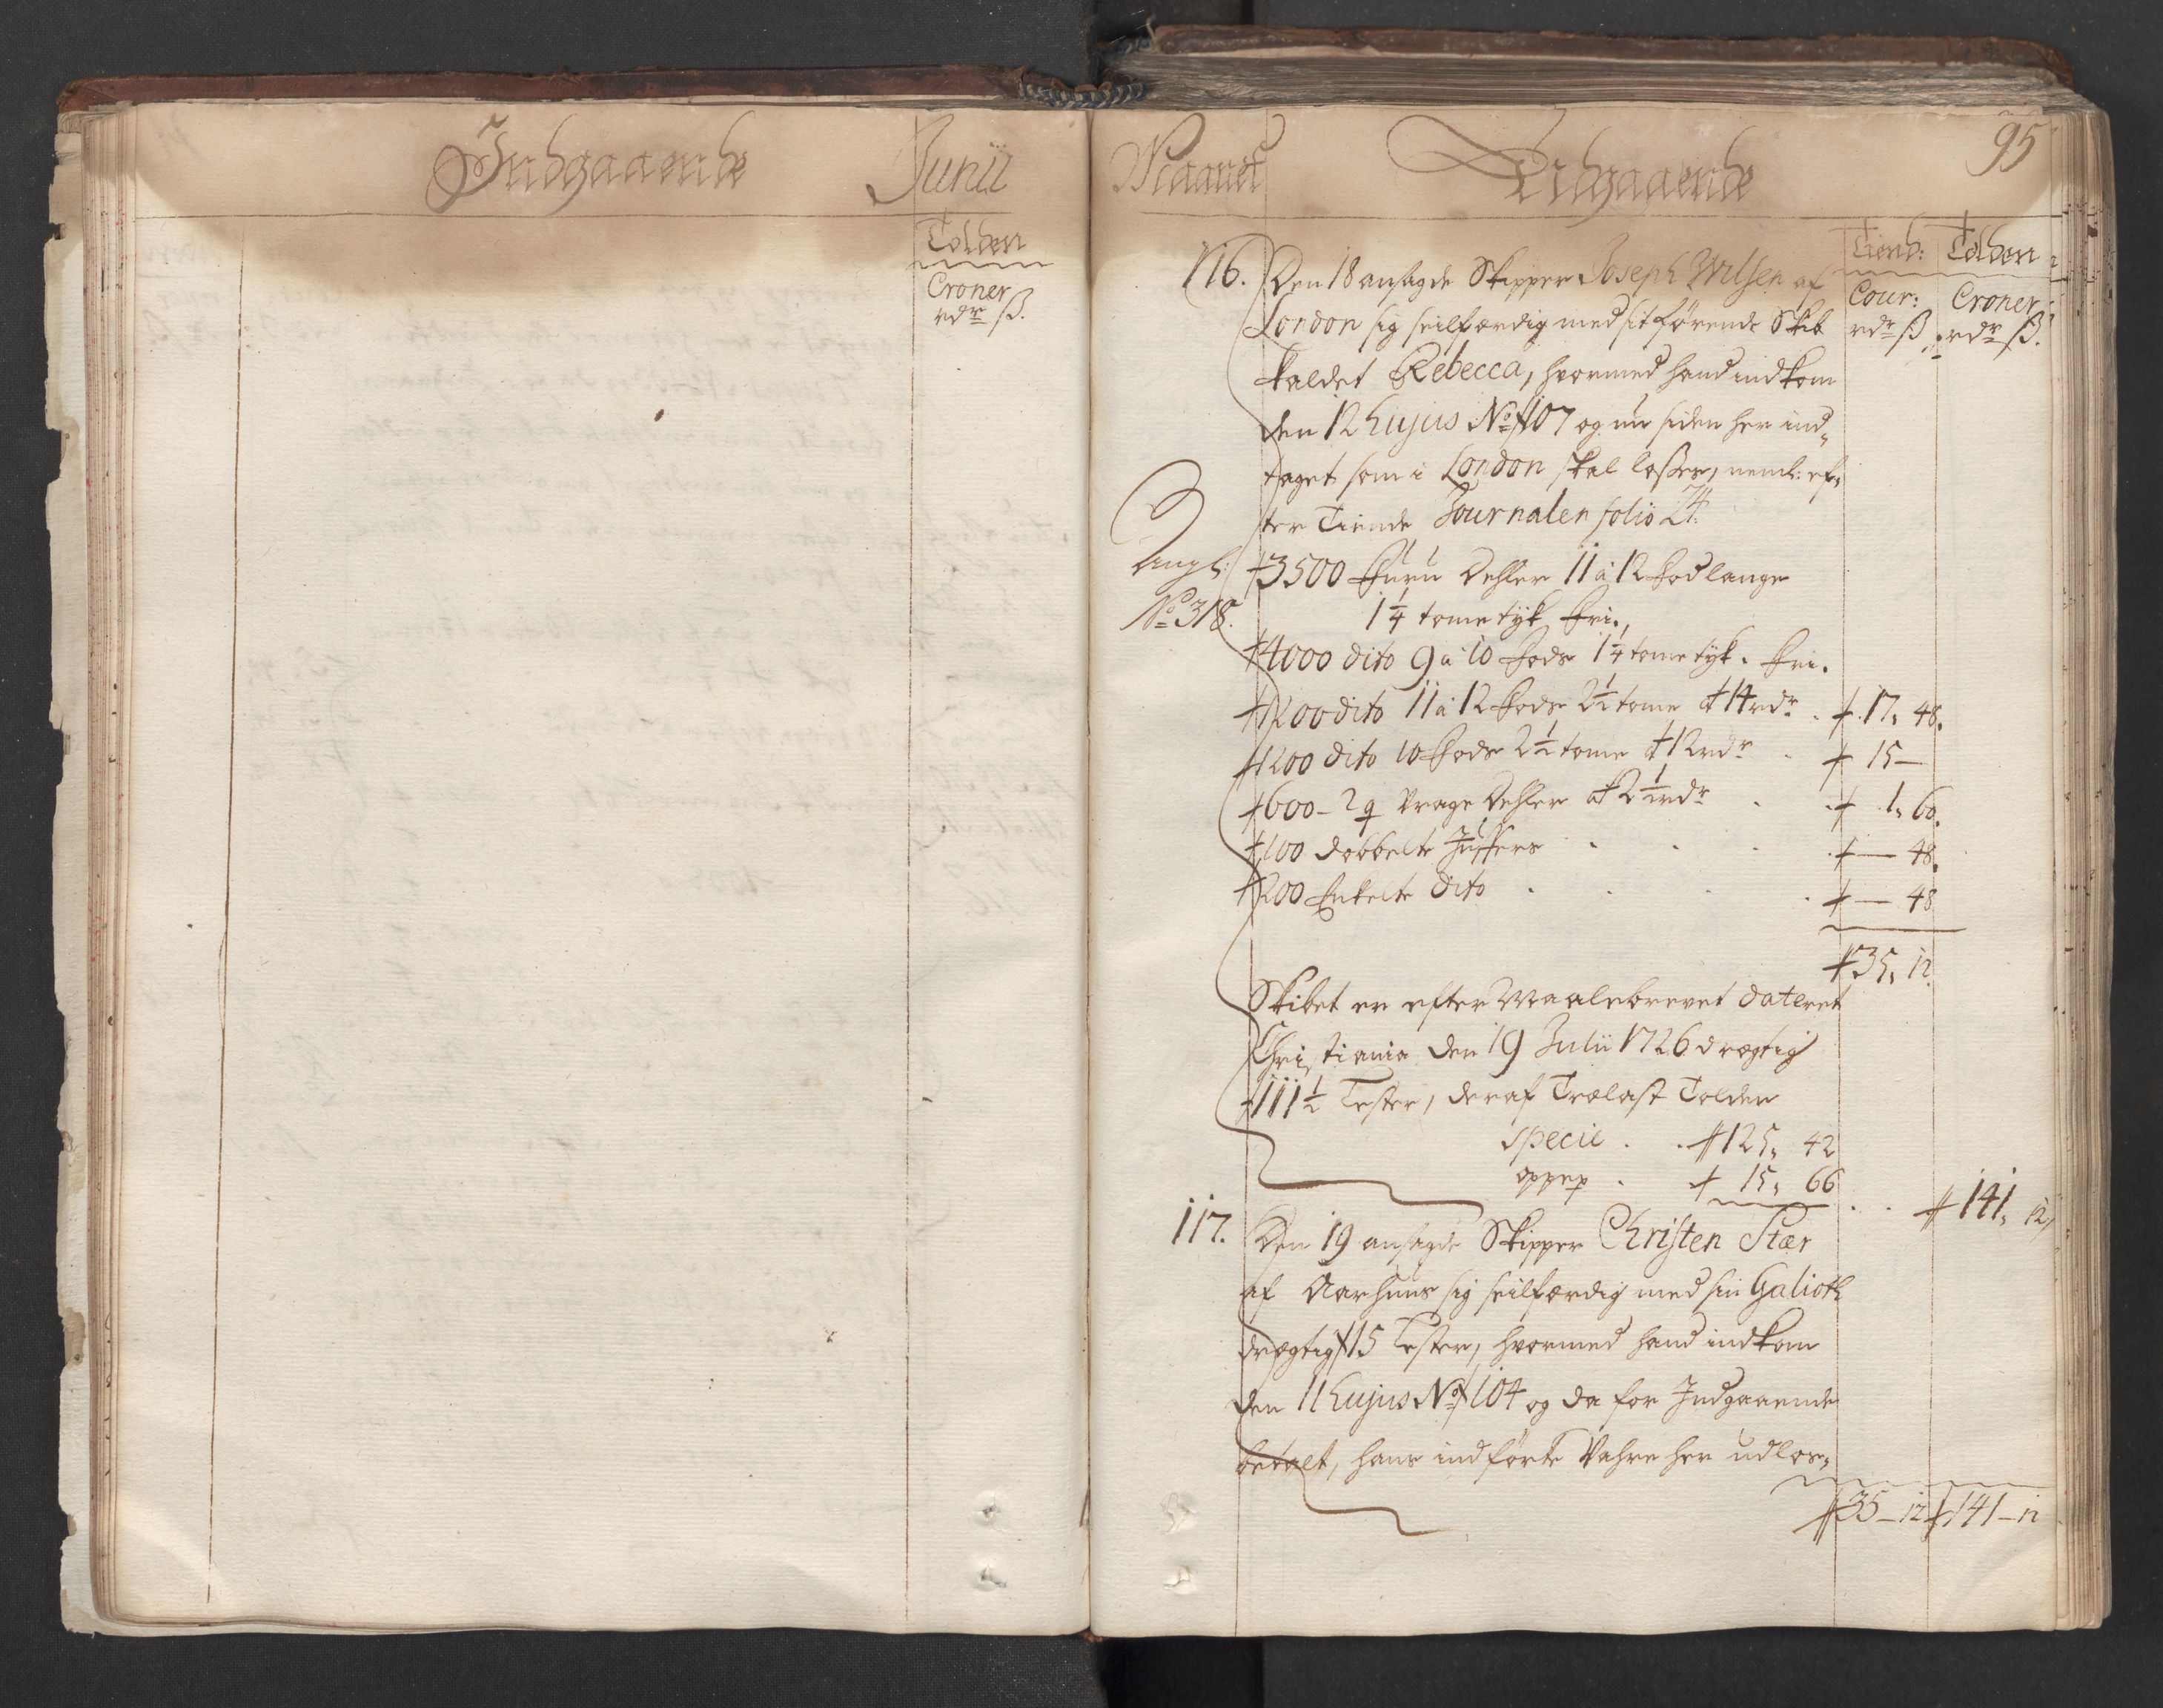 Indgaaende Junii
Tolden
Croner
rdr ß.
Maanet Udgaaende 95
Tiend: Tolden
Cour: Croner
rdr ß rdr ß.
116. Den 18 ansagde Skipper Joseph Wilsen af
London sig seilfærdig med sit førende Skib
kaldet Rebecca, hvormed hand indkom
den 12 hujus No 107 og nu siden her ind„
taget som i London skal losses, neml: ef„
ter Tiende Journalen folio 24.
Angl:
No 318.
3500 Furu Dehler 11 á 12 Fod lange
1 1/4 tome tyk fri.
4000 dito 9 á 10 Fods 1 1/4 tome tyk. fri.
1200 dito 11 á 12 Fods 2 1/2 tome at 14 rdr . 17„ 48.
1200 dito 10 Fods 2 1/2 tome at 12 rdr . 15 —
600 - Vrage Dehler at 2 1/2 rdr . . 1„ 60.
100 dobbelte Juffers . . . . — 48.
200 Enkelte dito . . . . — 48
35„ 12.
Skibet er efter Maalebrevet dateret
Christiania den 19 Julii 1726 drægtig
111 1/2 Lester, deraf Trælast Tolden
specie . . 125„ 42
oppep . 15„ 66
. . 141„ 12,
117. Den 19 ansagde Skipper Christen Stær
af Aarhuus sig seilfærdig med sin Galioth
drægtig 15 Lester, hvormed hand indkom
den 11 hujus No 104 og da for Indgaaende
betalt, hans indførte Vahre her udlos„
35 — 12 141 — 12